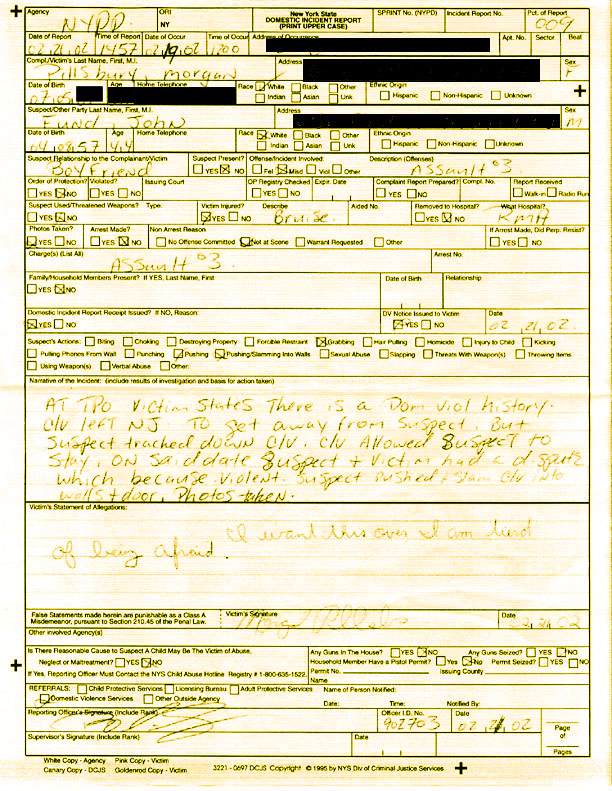 Agency NYPD ORI NY New York State DOMESTIC INCIDENT REPORT (PRINT UPPER CASE) SPRINT No. (NYPD) Incident Report No. Pct. of Report 009
Date of Report 02, 21, 02 Time of Report 1457 Date of Occur 02, 19, 02 Time of Occur 1200 Address of Occurrence Apt. No. Sector Beat
Compl./Victim's Last Name, First, M.I. Pillsbury, morgan Address Sex F
Date of Birth 07, 05 Age Home Telephone Race White Black Other Indian Asian Unk Ethnic Origin Hispanic Non-Hispanic Unknown
Suspect/Other Party Last Name, First, M.I. Fund John Address Sex M
Date of Birth 04, 08, 57 Age 44 Home Telephone Race White Black Other Indian Asian Unk Ethnic Origin Hispanic Non-Hispanic Unknown
Suspect Relationship to the Complainant/Victim Boyfriend Suspect Present? YES NO Offense/Incident Involved: Fel Misd Viol Other Description (Offenses) Assault °3
Order of Protection? YES NO Violated? YES NO Issuing Court OP Registry Checked YES NO Expir. Date Complaint Report Prepared? YES NO Compl. No. Report Received Walk-in Radio Run
Suspect Used/Threatened Weapons? YES NO Type: Victim Injured? YES NO Describe Bruise. Aided No. Removed to Hospital? YES NO What Hospital?
Photos Taken? YES NO Arrest Made? YES NO Non Arrest Reason No Offense Committed Not at Scene Warrant Requested Other If Arrest Made, Did Perp. Resist? YES NO
Charge(s) (List All) Assault °3. Arrest No.
Family/Household Members Present? If YES, Last Name, First YES NO Date of Birth Relationship
Domestic Incident Report Receipt Issued? If NO, Reason: YES NO DV Notice Issued to Victim YES NO Date 02, 21, 02
Suspect's Actions: Biting Choking Destroying Property Forcible Restraint Grabbing Hair Pulling Homicide Injury to Child Kicking
Pulling Phones From Wall Punching Pushing Pushing/Slamming Into Walls Sexual Abuse Slapping Threats With Weapon(s) Throwing Items
Using Weapon(s) Verbal Abuse Other:
Narrative of the Incident: (include results of investigation and basis for action taken)
AT TPO Victim States There is a Dom Viol History.
C/V left NJ. TO get away from Suspect. But
Suspect tracked down C/V. C/V Allowed Suspect to
Stay. ON Said date Suspect + Victim had a dispute
which because violent. Suspect pushed + slam C/V into
walls + door, Photos taken.
Victim's Statement of Allegations:
I want this over I am tired
of being afraid.
False Statements made herein are punishable as a Class A Misdemeanor, pursuant to Section 210.45 of the Penal Law. Victim's Signature Date 02, 21, 02
Other involved Agency(s)
Is There Reasonable Cause to Suspect A Child May Be The Victim of Abuse, Neglect or Maltreatment? YES NO
If Yes, Reporting Officer Must Contact the NYS Child Abuse Hotline Registry # 1-800-635-1522.
Any Guns In The House? YES NO Any Guns Seized? YES NO
Household Member Have a Pistol Permit? Yes No Permit Seized? YES NO
Permit No. Issuing County
Name
REFERRALS: Child Protective Services Licensing Bureau Adult Protective Services
Domestic Violence Services Other Outside Agency
Name of Person Notified:
Date: Time: Notified By:
Reporting Officer's Signature (Include Rank) Officer I.D. No. 902703 Date 02, 21, 02 Page of Pages
Supervisor's Signature (Include Rank) Date
White Copy - Agency Pink Copy - Victim
Canary Copy - DCJS Goldenrod Copy - Victim
3221 - 0697 DCJS Copyright © 1995 by NYS Div of Criminal Justice Services